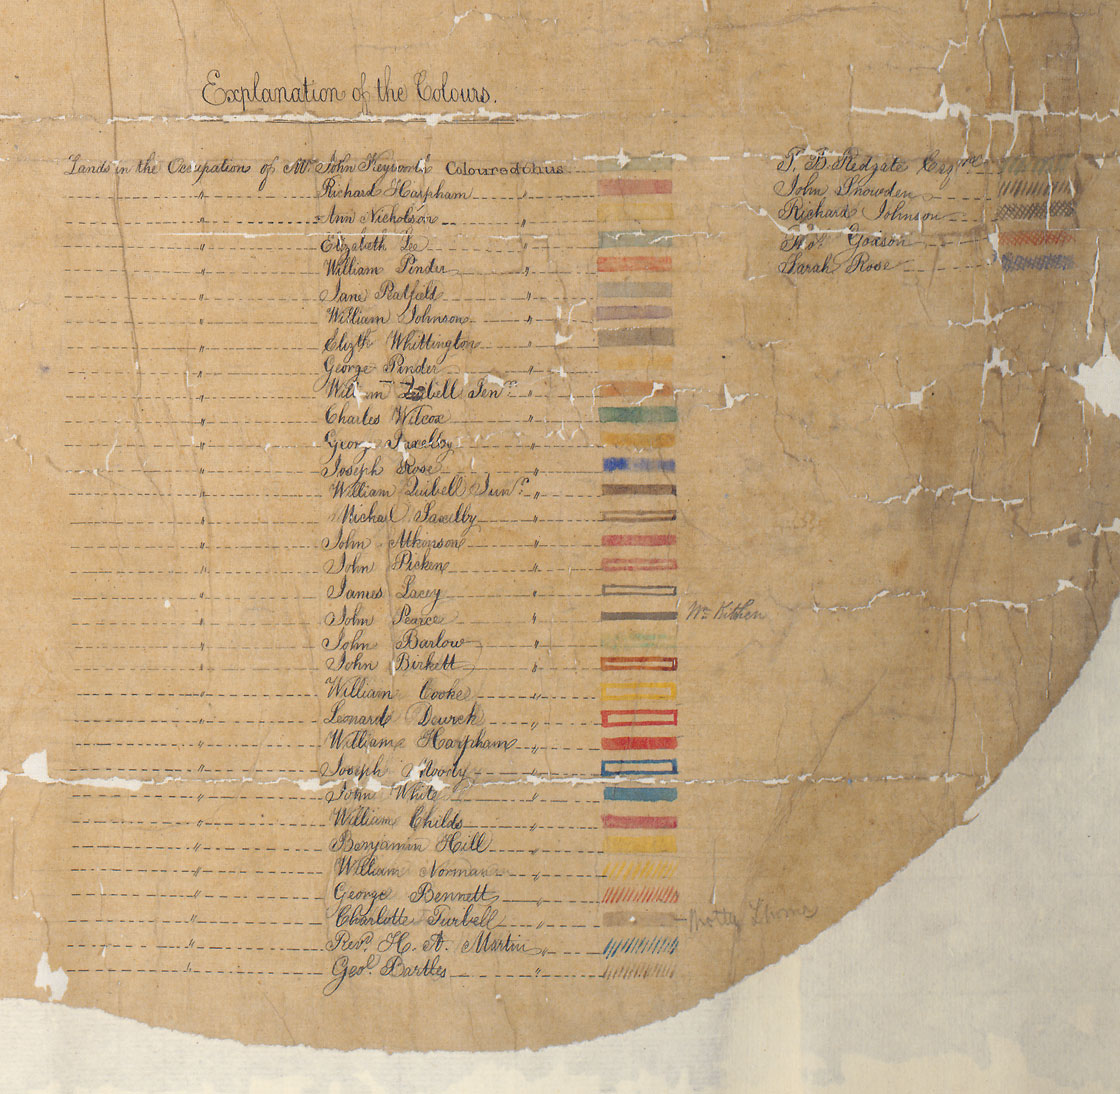 Explanation of the Colours.
Lands in the Occupations of Mr. John Keyworth Coloured thus
" Richard Harpham "
" Ann Nicholson "
" Elizabeth Lee "
" William Pinder "
" Jane Peatfield "
" William Johnson "
" Elizth Whittington "
" George Pinder "
" William Quibell Senr. "
" Charles Wilcox "
" George Saxelby "
" Joseph Rose "
" William Quibell Junr. "
" Michael Saxelby "
" John Atkonson "
" John Picken "
" James Lacey "
" John Pearce " Wm Kitchen
" John Barlow "
" John Birkett "
" William Cooke "
" Leonard "
" William Harpham "
" Joseph Moody "
" John White "
" William Childs "
" Benjamin Hill "
" William Norman "
" George Bennett "
" Charlotte Turbell "
" Revd. H. A. Martin "
" Geo. Bartles "
T. B. Redgate Esqre
John Snowden
Richard Johnson
Goxson
Sarah Rose